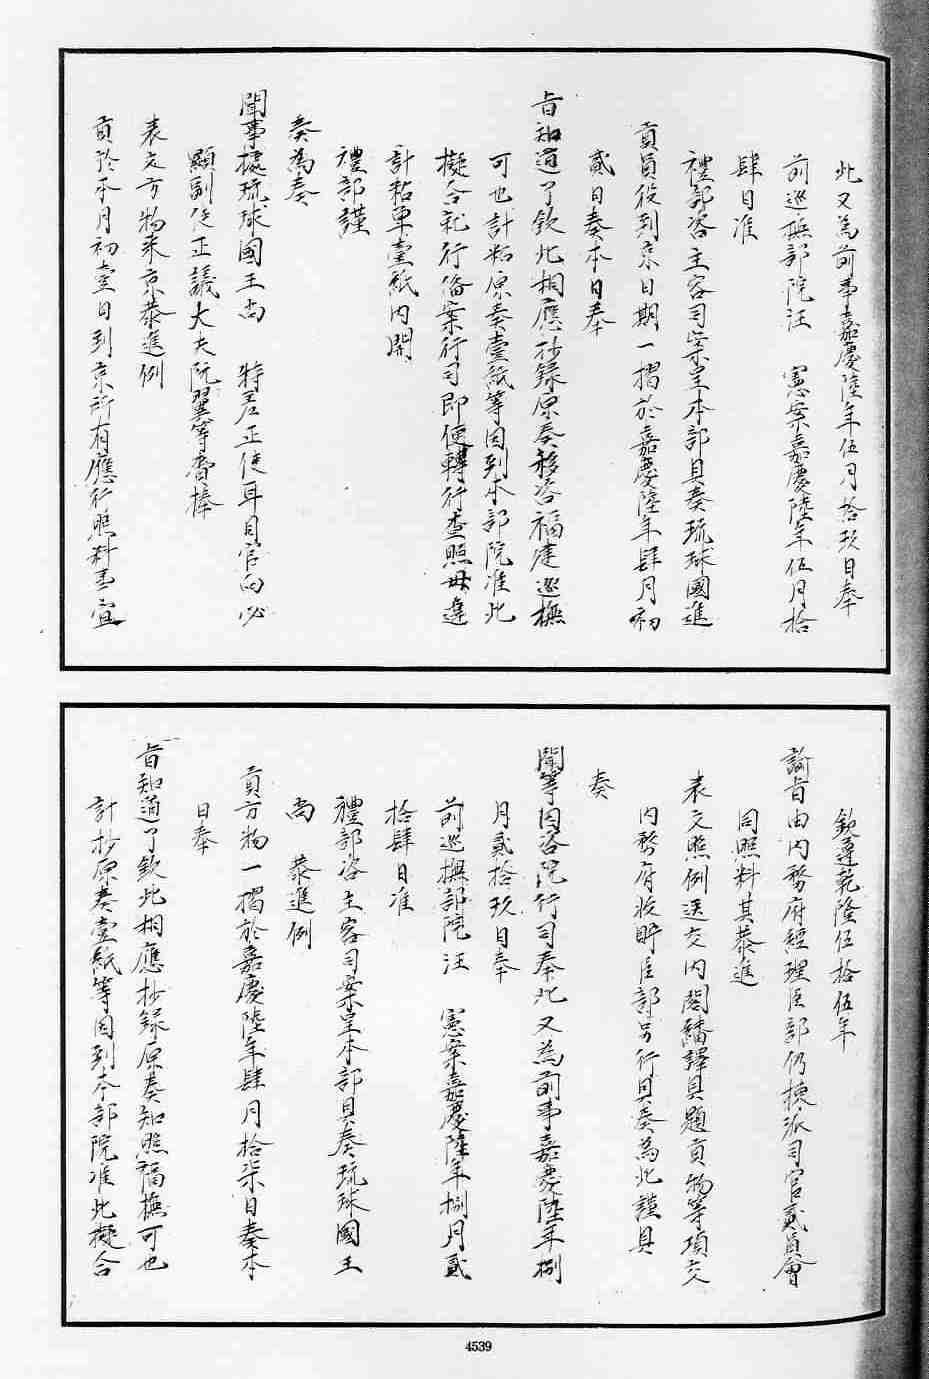 此又為前事嘉慶陸年伍月拾玖日奉
前巡撫部院汪　憲案嘉慶陸年伍月拾
肆日准
禮部咨主客司案呈本部具奏琉球國進
貢員役到京日期一摺於嘉慶陸年肆月初
貳日奏本日奉
旨知道了欽此相應抄錄原奏移咨福建巡撫
可也計粘原奏壹紙等因到本部院准此
擬合就行備案行司即便轉行查照毋違
計粘單壹紙內開
禮部謹
奏為奏
聞事據琉球國王尚　特差正使耳目官向必
顯副使正議大夫阮翼等賫捧
表文方物來京恭進例
貢於本月初壹日到京所有應行照料事宜
欽遵乾隆伍拾伍年
諭旨由內務府經理臣部仍揀派司官貳員會
同照料其恭進
表文照例送交內閣繙譯具題貢物等項交
內務府收貯臣部另行具奏為此謹具
奏
聞等因咨院行司奉此又為前事嘉慶陸年捌
月貳拾玖日奉
前巡撫部院汪　憲案嘉慶陸年捌月貳
拾肆日准
禮部咨主客司案呈本部具奏琉球國王
尚　恭進例
貢方物一摺於嘉慶陸年肆月拾柒日奏本
日奉
旨知道了欽此相應抄錄原奏知照福撫可也
計抄原奏壹紙等因到本部院准此擬合
4539